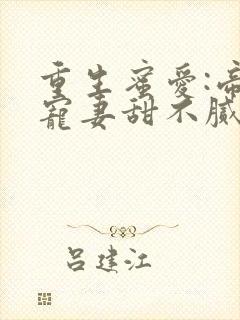 重生蜜爱:帝
宠妻甜不腻
吕建江